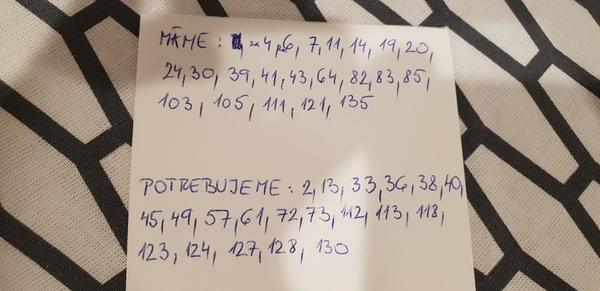 MÁME : 4, 6, 7, 11, 14, 19, 20,
24, 30, 39, 41, 43, 64, 82, 83, 85,
103, 105, 111, 121, 135
POTREBUJEME : 2, 13, 33, 36, 38, 40,
45, 49, 57, 61, 72, 73, 112, 113, 118,
123, 124, 127, 128, 130